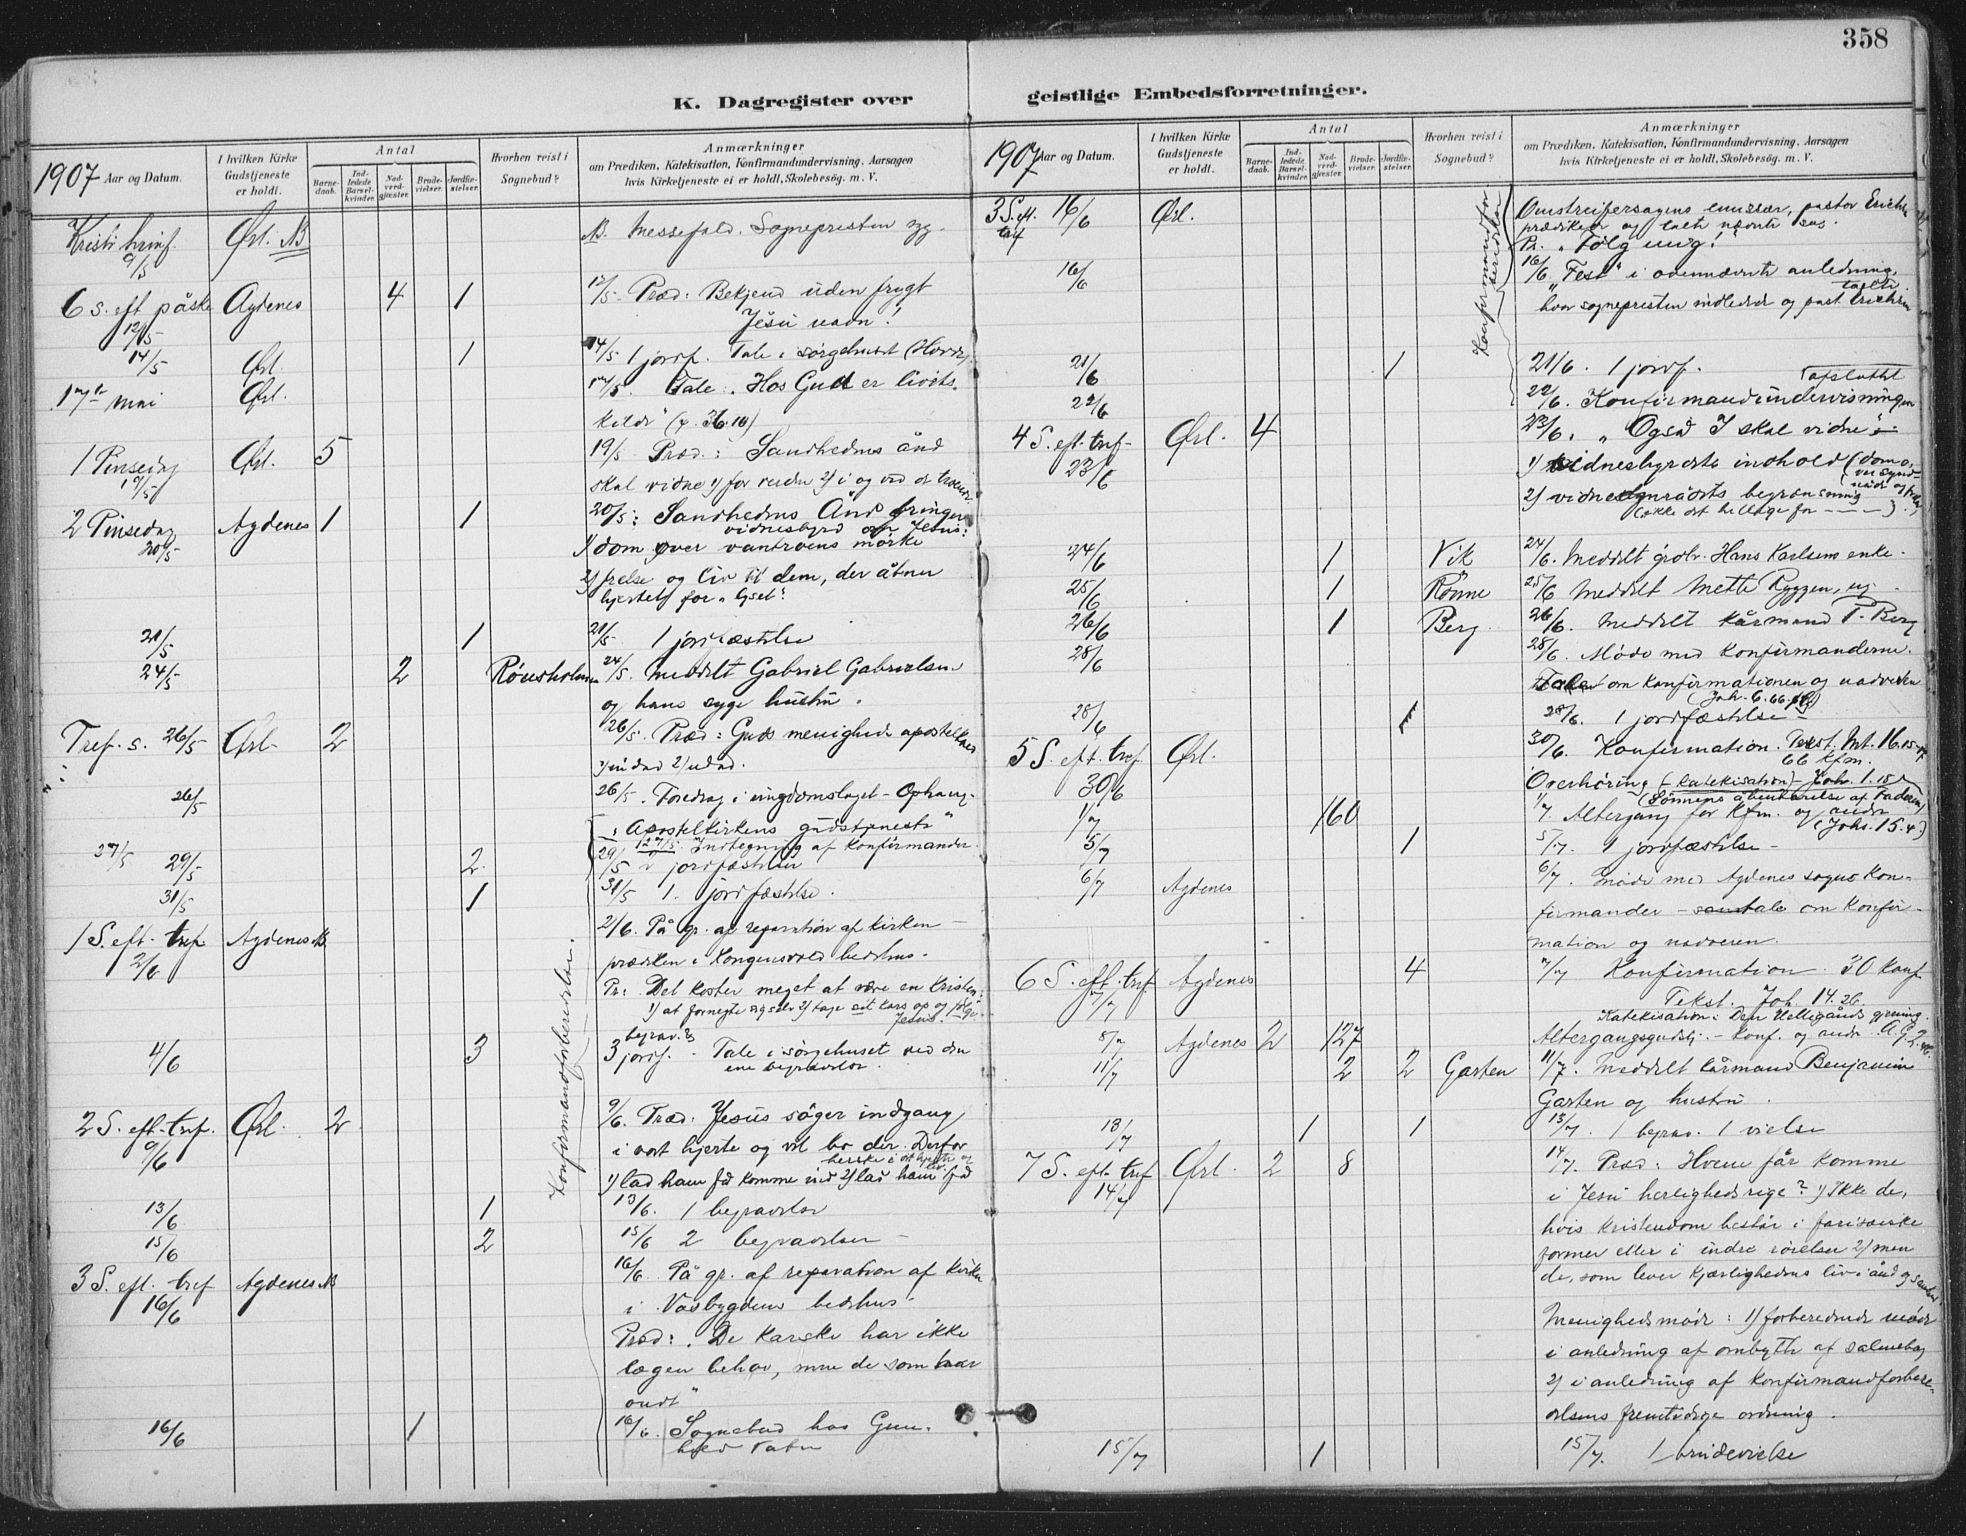 358
K. Dagregister over
1907 Aar og Datum.
I hvilken Kirke Gudstjeneste er holdt.
Antal
Barnedaab.
Indledede Barselkvinder.
Nadverdgjæster.
Brudevielser.
Jordfæstelser.
Hvorhen reist i Sognebud?
Anmærkninger
om Prædiken, Katekisation, Konfirmandundervisning, Aarsagen
hvis Kirketjeneste ei er holdt, Skolebesøg. m. V.
Kristi himf. 9/5 Ørl. NB NB. Messefald. Sognepresten syg.
6 s. eft påske 12/5 Agdenes 4 1 12/5 Præd: Bekjend uden frygt
Jesu navn!
14/5 Ørl. 1 14/5 1 jordf. Tale i sørgehuset
17de mai Ørl. 17/5. Tale: "Hos Gud er livets
kilde" (36.10)
1 Pinsedag 19/5 Ørl. 5 19/5 Præd: Sandhedens ånd
skal vidne 1) for verden 2) i og ved de troende
2 Pinsedag 20/5 Agdenes 1 1 20/5: Sandhedens Ånd bringer
vidnesbyrd om Jesus:
1) dom over vantroens mørke
2) frelse og liv til dem, der åbner
hjertet for "lyset".
21/5 1 21/5 1 jordfæstelse
24/5 2 24/5. Meddelt Gabriel Gabrielsen
og hans syge hustru.
Tref. s. 26/5 Ørl. 2 26/5. Præd: Guds menighed
1) indad 2) udad.
26/5 26/5. Foredrag i ungdomslaget
: Apostelkirkens gudstjeneste"
27/5 27/5. Indtegning af konfirmander
29/5 2 29/5 2 jordfæstelser
31/5 1 31/5 1 jordfæstelse.
1 S. eft. tref. 2/6 Agdenes NB. 2/6. På gr. af reparation af kirken
prædiken i Kongensvold bedehus.
Pr: Det koster meget at være en kristen:
1) at fornegte sig selv 2) tage sit kors op og følge
Jesus.
4/6 3 3 begrav. & jordf. Tale i sørgehuset ved den
ene begravelse.
Konfirmandforberedelse.
2 S. eft. tref. 9/6 Ørl. 2 9/6. Præd: Jesus søger indgang
i vort hjerte og vil bo der. Derfor
1) lad ham få komme ind 2) lad ham få
herske i dit hjerte og liv.
13/6 1 13/6. 1 begravelse
15/6 2 15/6 2 begravelser
3 S. eft. tref 16/6 Agdenes NB 16/6. På gr. af reparation af kirken
i Vasbygdens bedehus.
Præd: De karske har ikke
lægen behov, men de som har
ondt"
16/6 1 16/6. Sognebud hos
geistlige Embedsforretninger.
1907 Aar og Datum.
I hvilken Kirke Gudstjeneste er holdt.
Antal
Barnedaab.
Indledede Barselkvinder.
Nadverdgjæster.
Brudevielser.
Jordfæstelser.
Hvorhen reist i Sognebud?
Anmærkninger
om Prædiken, Katekisation, Konfirmandundervisning, Aarsagen
hvis Kirketjeneste ei er holdt, Skolebesøg. m. V.
3 S. eft. tref 16/6 Ørl. Omstreifersagens emissær, pastor
prædiket og talte nævnte sag.
Pr. "Følg mig!"
16/6 16/6 "Fest" i ovennævnte anledning,
hvor sognepresten indledede og past. talte.
Konfirmandforberedelse
21/6 1 21/6. 1 jordf.
22/6 22/6. Konfirmandundervisningen afsluttet
4 S. eft. tref. 23/6 Ørl. 4 23/6. "Også I skal vidne":
1) vidnesbyrdets indhold
2) begrænsning
24/6 1 Vik 24/6. Meddelt Hans Karlsens enke.
25/6 1 Rønne 25/6 Meddelt Mette Ryggen,
26/6 1 Berg. 26/6. Meddelt kårmand P. Berg
28/6 28/6. Møde med konfirmanderne.
Tale om konfirmationen og nadveren
28/6 1 28/6. 1 jordfæstelse
5 S. eft. tref. 30/6 Ørl. 30/6. Konfirmation. Tekst. Mt. 16.
66 kfm.
Overhøring (katekisation) Joh. 1.
1/7 160 1/7. Altergang for kfm. og andre
(Joh. 15.4)
5/7 1 5/7. 1 jordfæstelse
6/7 Agdenes 6/7. Møde med Agdenes sogns kon-
firmander - samtale om konfir-
mation og nadveren.
6 S. eft. tref 7/7 Agdenes 4 7/7 Konfirmation. 30 konf
Tekst. Joh. 14.26.
Katekisation: Den Helligånds gjerning.
8/7 Agdenes 2 127 Altergangsgudstj. - konf. og andre. A.G. 2.
11/7 2 2 Garten 11/7. Meddelt kårmand Benjamin
Garten og hustru.
13/7 1 1 13/7. 1 begrav. 1 vielse
7 S. eft. tref 14/7 Ørl. 2 8 14/7. Præd: Hvem får komme
i Jesu herlighedsrige? 1) Ikke de,
hvis kristendom består i farisæiske
former eller i indre rørelser 2) men
de, som lever kjærlighedens liv i ånd og sandhed.
Menighedsmøde: 1) forberedende møde
i anledning af ombytte af salmebog
2) i anledning af konfirmandforbere-
delsens fremtidige ordning.
15/7 1 15/7. 1 brudevielse